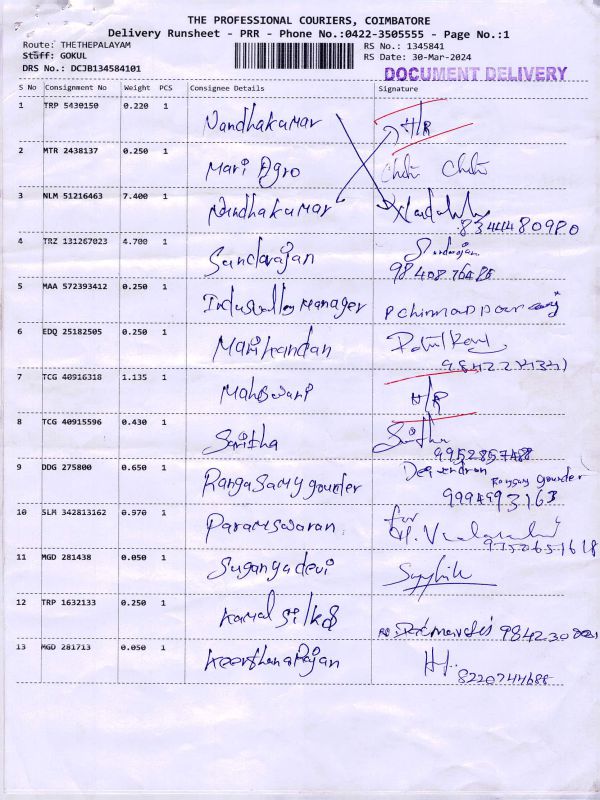 THE PROFESSIONAL COURIERS, COIMBATORE
Delivery Runsheet - PRR - Phone No.:0422-3505555 - Page No.:1
Route: THETHEPALAYAM RS No.: 1345841
Staff: GOKUL RS Date: 30-Mar-2024
DRS No.: DCJB134584101 DOCUMENT DELIVERY
S No Consignment No Weight PCS Consignee Details Signature
1 TRP 5430150 0.220 1 Nandhakumar H/R
2 MTR 2438137 0.250 1 Mari Agro
3 NLM 51216463 7.400 1 Nandhakumar
8344480980
4 TRZ 131267023 4.700 1 Sundarajan
5 MAA 572393412 0.250 1 Manager
6 EDQ 25182505 0.250 1 Manikandan
7 TCG 40916318 1.135 1 Maheswari H/R
8 TCG 40915596 0.430 1 Saritha
9952857488
9 DDG 275800 0.650 1 Rangasamy gounder
9994993163
10 SLM 342813162 0.970 1 Parameswaran for
9750651618
11 MGD 281438 0.050 1 Suganyadevi
12 TRP 1632133 0.250 1 Kamal silks
13 MGD 281713 0.050 1 Keerthanarajan
8220744688